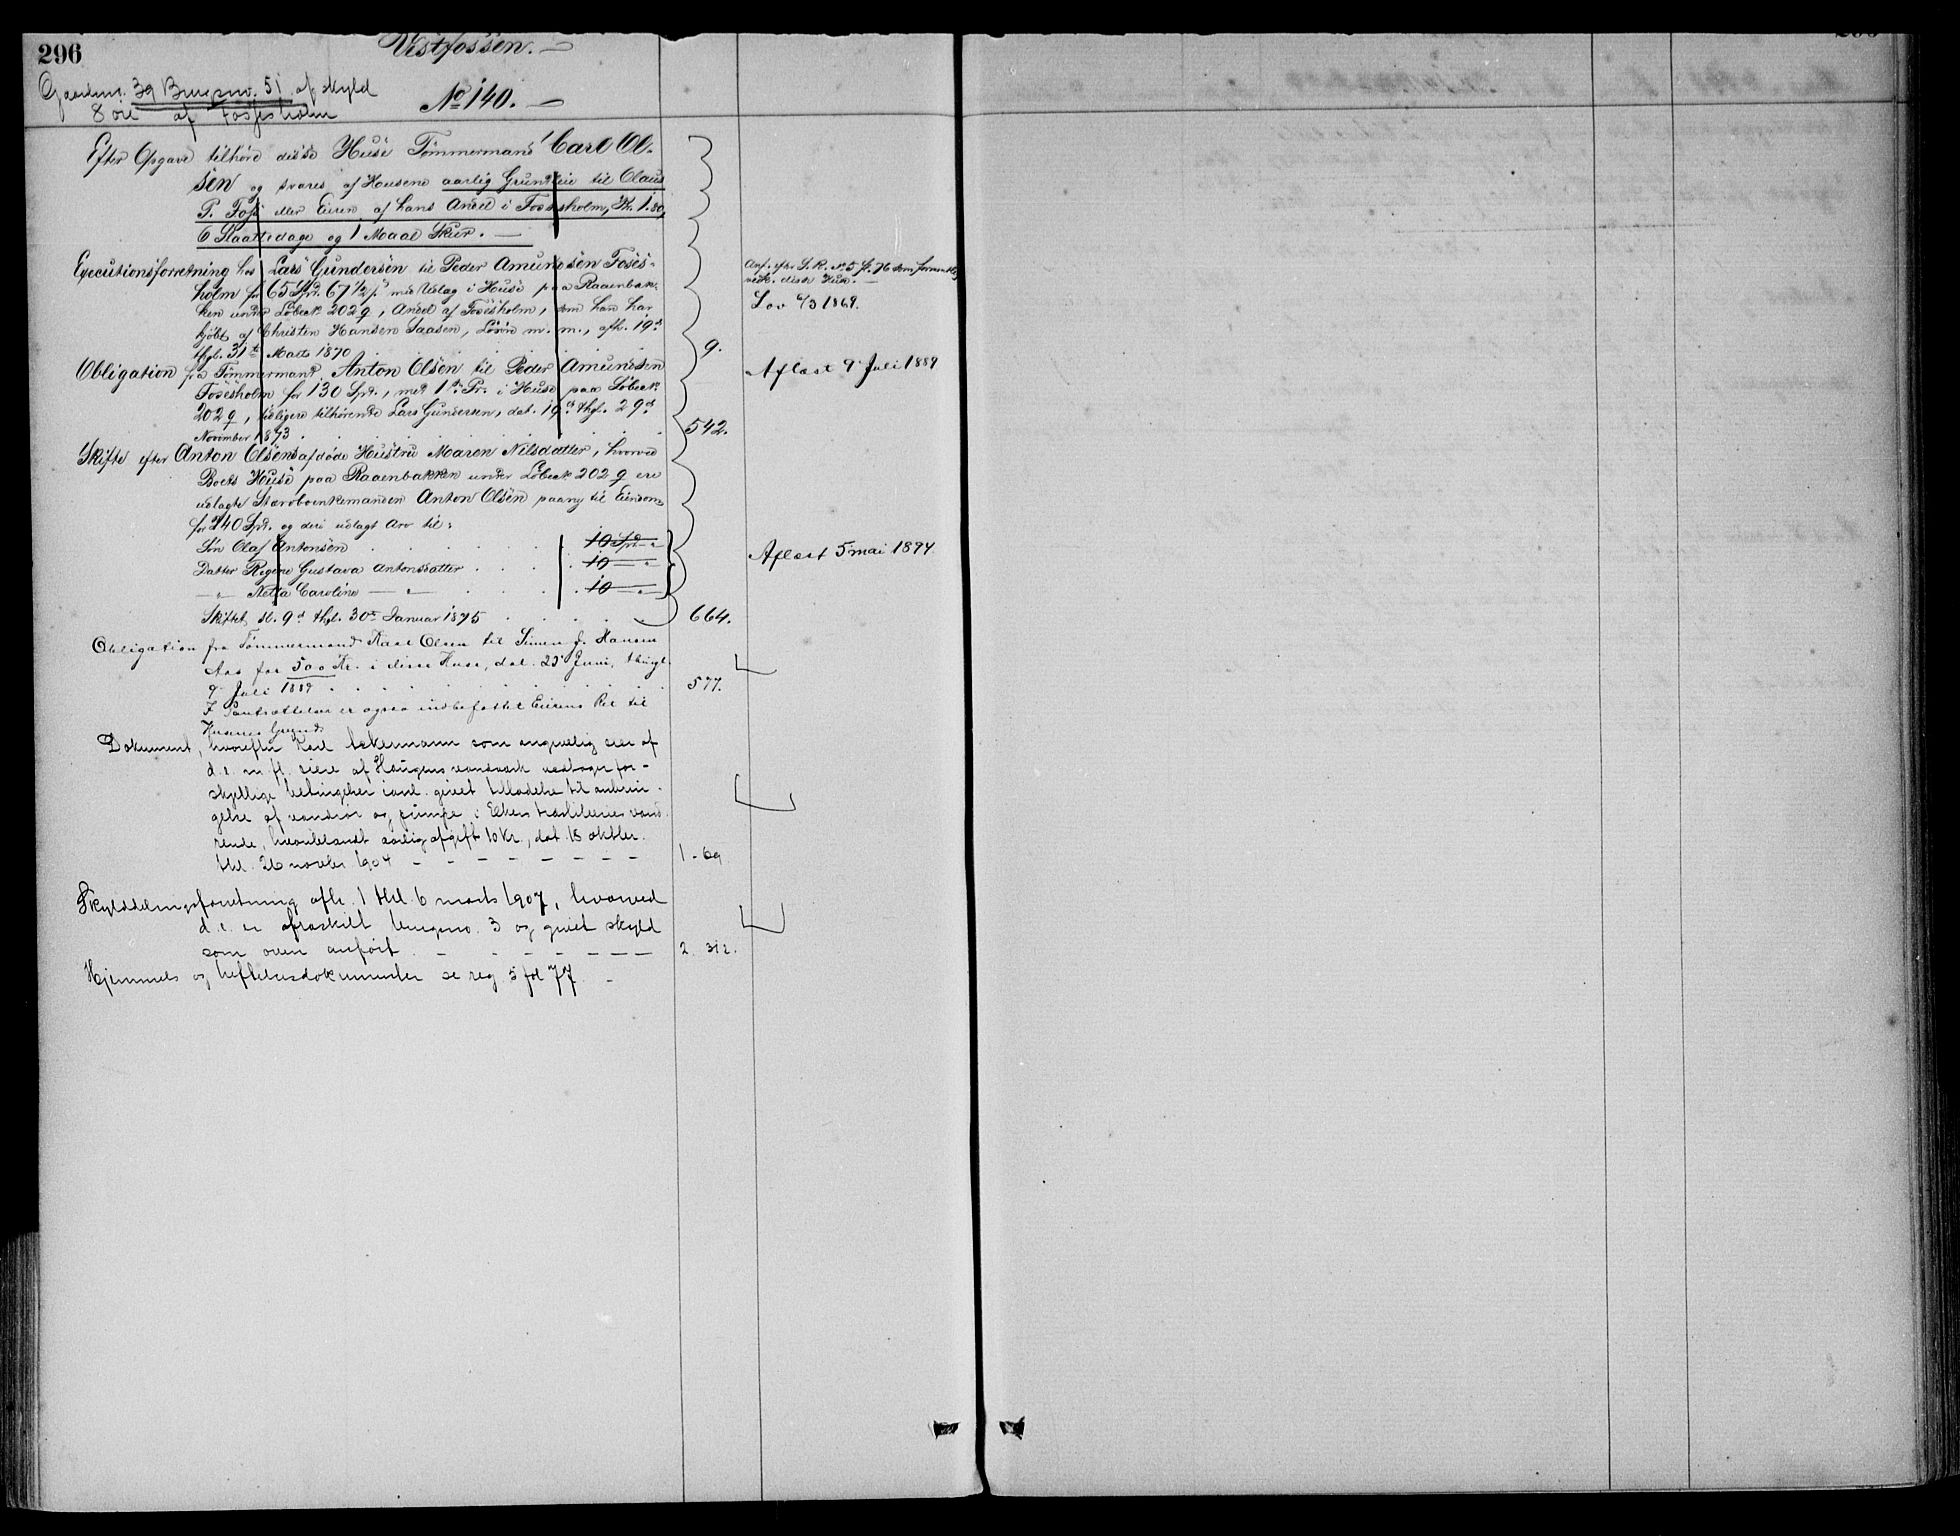 296
Vestfossen. —
Gaardsno. 39 Brugsno. 51 af skyld
8 øre af Fossesholm
No 140. —
Efter Opgave tilhøre disse Huse Tømmermand Carl Ol-
sen og svares af Husene aarlig Grundleie til Claus
P. Foss eller Eieren af hans Andel i Fossesholm, Kr. 1.80,
6 Slaattedage og 1 Maal Skur. —
Executionsforretning hos Lars Gundersen til Peder Amundsen Foses-
holm for 65 Spd. 67 1/2 s med Udlag i Huse paa Raaenbak-
ken under Løbeno 202 g, Andel af Fosesholm, som han har
kjøbt af Christen Hansen Saasen, Løsøre m. m., afh. 19de
thgl. 31te Marts 1870 . . . . . 9.
Anf. efter S. R. No 5 f. 76 som formentlig
vedk. disse Huse. —
Lov 6/3 1869.
Obligation fra Tømmermand Anton Olsen til Peder Amundsen
Fosesholm for 130 Spd., med 1ste Pr. i Huse paa Løbeno
202 g, tidligere tilhørende Lars Gundersen, dat. 19de thgl. 29de
November 1873 . . . . . 542.
Aflæst 9 Juli 1889
Skifte efter Anton Olsens afdøde Hustru Maren Nilsdatter, hvorved
Boets Huse paa Raaenbakken under Løbeno 202 g ere
udlagte Stervboenkemanden Anton Olsen paany til Eiendom
for 240 Spd. og deri udlagt Arv til:
Søn Olaf Antonsen . . . . 10 Spd. "
Datter Regine Gustava Antonsdatter . . . . 10 — "
— " — Netta Caroline — " — . . . . 10 — "
Aflæst 5 mai 1894
Skiftet sl. 9de thgl. 30te Januar 1875 . . . . 664.
Obligation fra Tømmermand Karl Olsen til Simen J. Hansen
Aas for 500 Kr. i disse Huse, dat. 25 Juni, thingl.
9 Juli 1889 . . . . . 577.
I Pantsættelsen er ogsaa indbefattet Eierens Ret til
Husenes Grund.
Dokument, hvorefter Karl Askermann som angivelig eier af
d. e. m. fl. eiere af Haugens vandværk vedtager for-
skjellige betingelser i anl. givet tilladelse til anbrin-
gelse af vandrør og pumpe i Eker træsliberies vand-
rende, hvoriblandt aarlig afgift 10 kr., dat. 18 oktbr.
thl. 26 novbr 1904 — — — — — — 1 - 69
Skylddelingsforretning afh. 1 thl 6 marts 1907, hvorved
d. e. er fraskilt brugsno. 3 og givet skyld
som oven anført. — — — — — — 2. 312.
Hjemmels og heftelsesdokumenter se reg. 5 fol 77. —